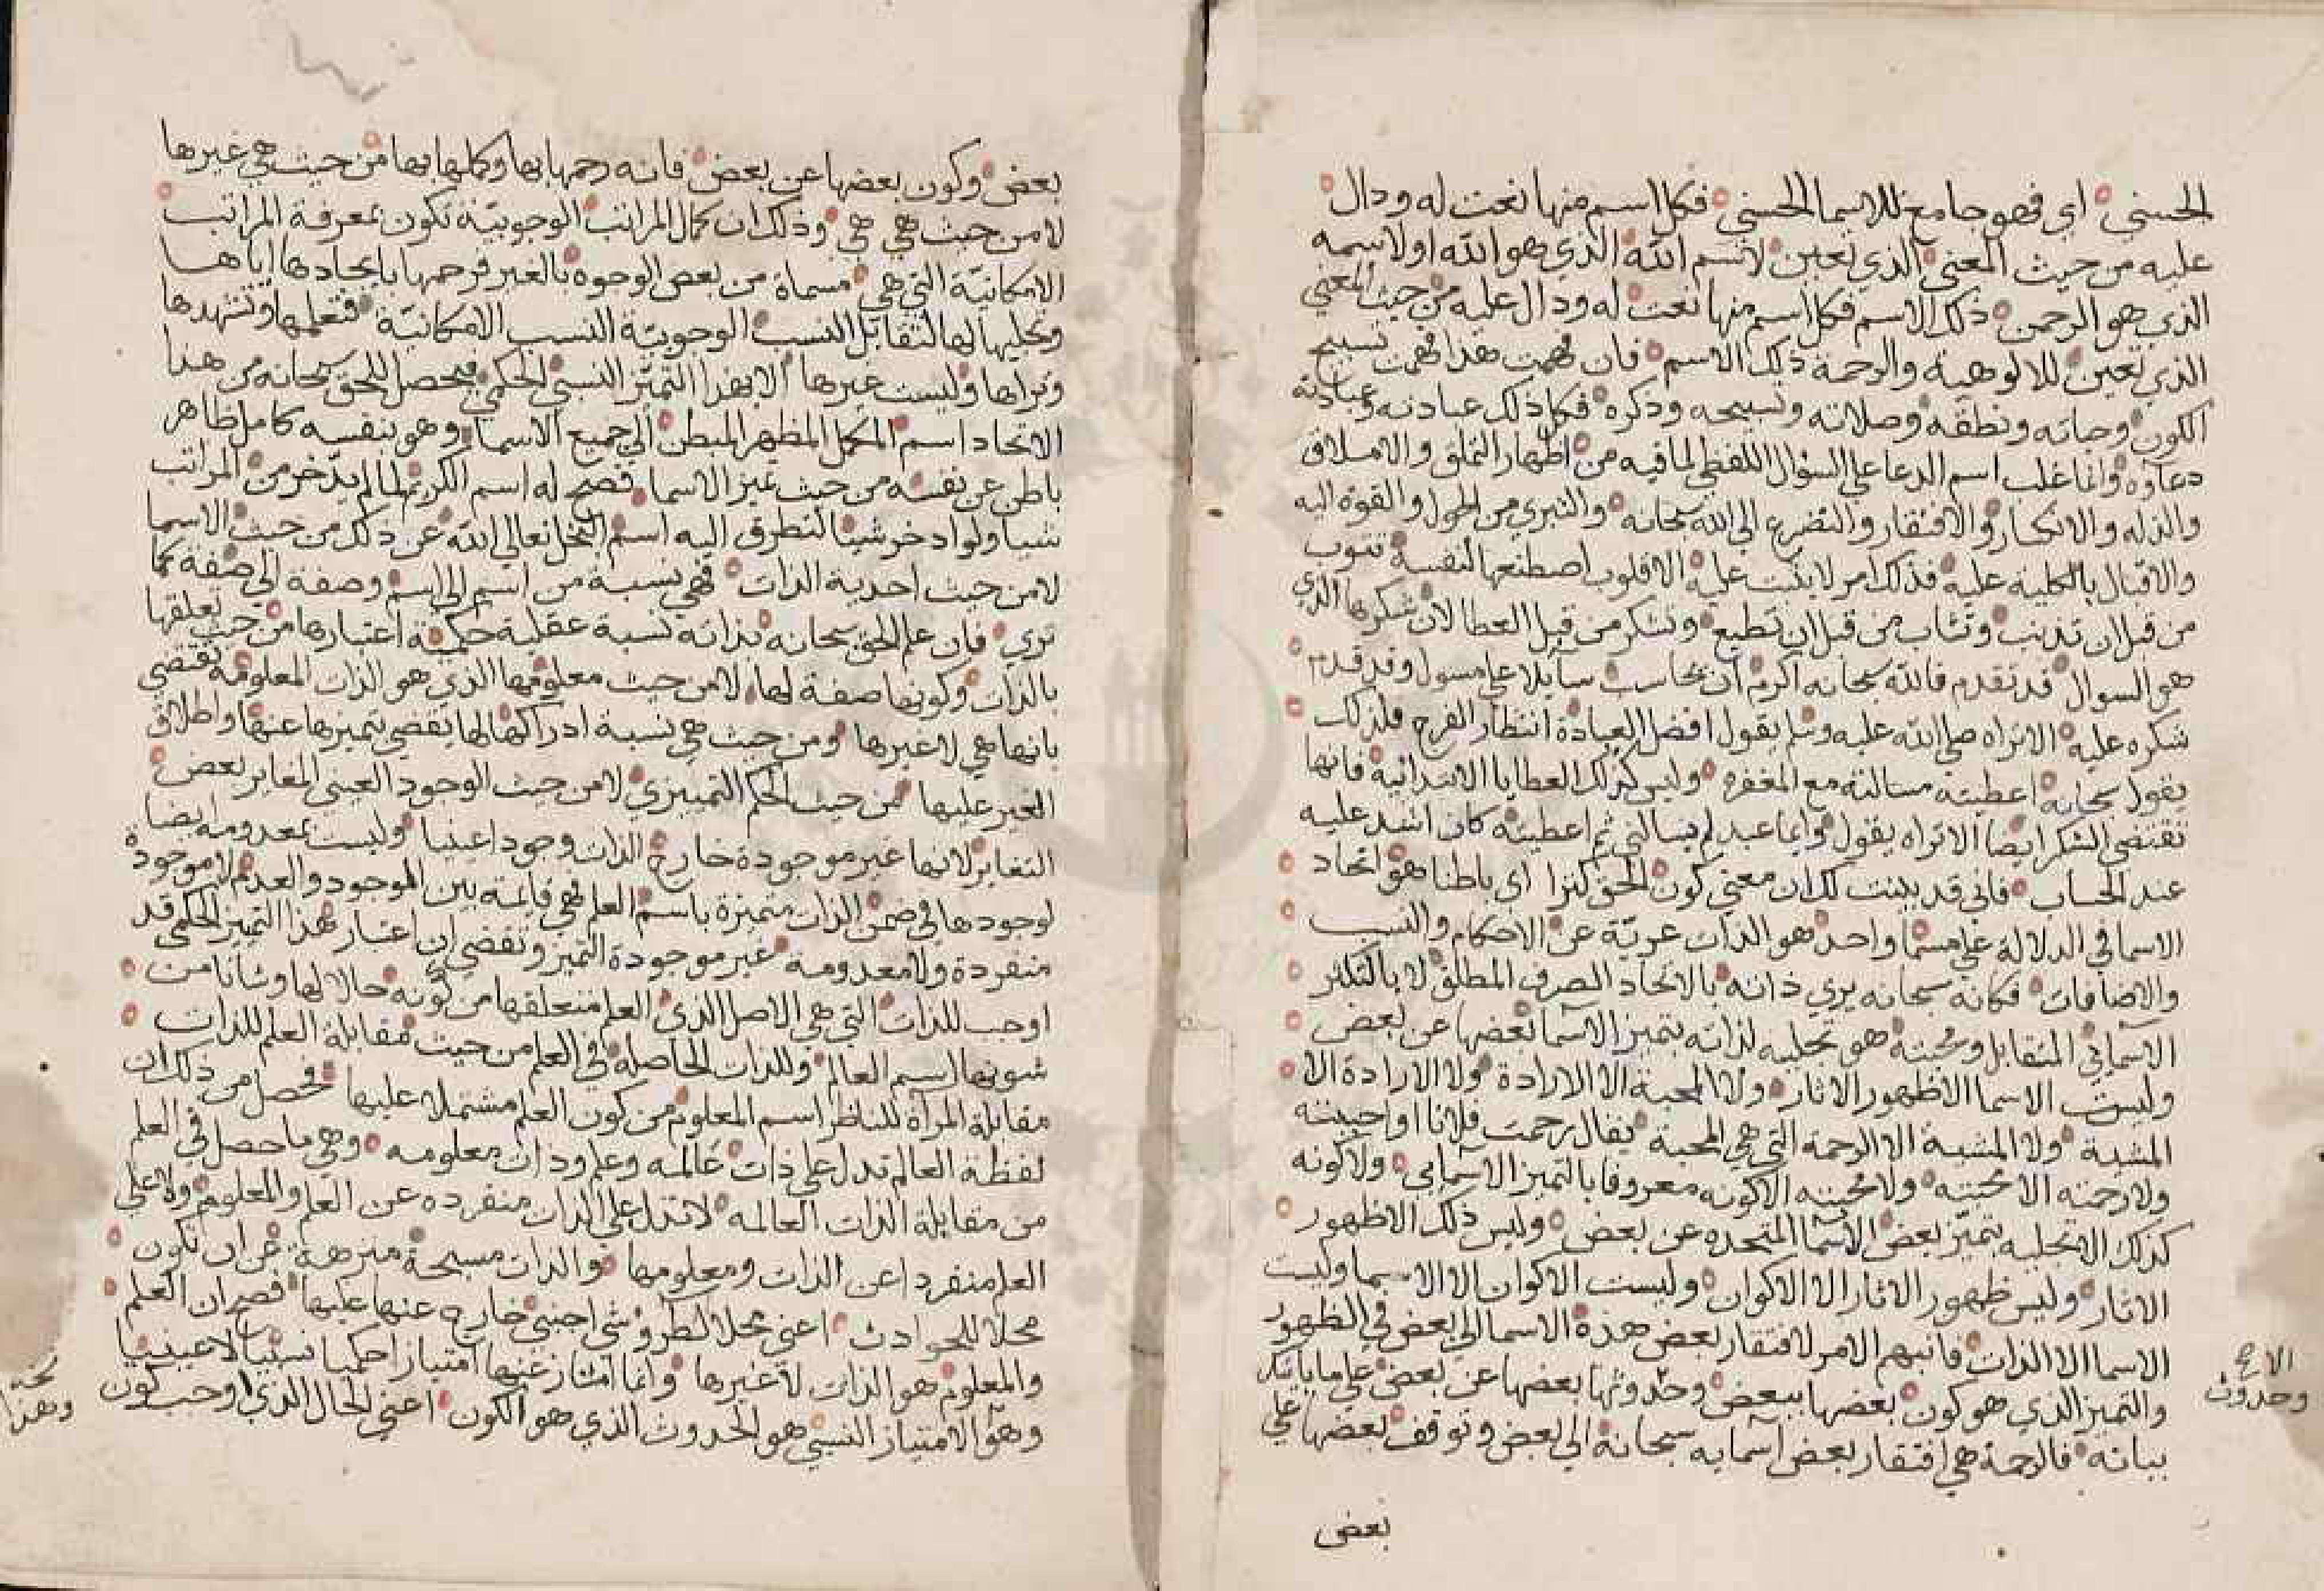 الحسنى اي فهو جامع للاسما الحسنى فكل اسم منها نعت له ودال
عليه من حيث المعنى الذي تعين لاسم الله الذي هو الله اولاسمه
الذي هو الرحمن ذلك الاسم فكل اسم منها نعت له ودال عليه من حيث المعنى
الذي تعين للالوهية والرحمة ذلك الاسم فان فهمت هذا فهمت تسبيح
الكون وحياته ونطقه وصلاته وتسبيحه وذكره فكل ذلك عبادته وعبادته
دعآوه وانما غلب اسم الدعا على السؤال اللفظي لما فيه من اظهار التملق والاملاق
والذله والانكسار والافتقار والتضرع الى الله سبحانه والتبري من الحول والقوة اليه
والاقبال بالكلية عليه فذلك امر لا يثبت عليه الا قلوب اصطنعها لنفسه تتوب
من قبل ان تذنب وتثاب من قبل ان تطيع وتشكر من قبل العطا لان شكرها الذي
هو السوال قد تقدم فالله سبحانه اكرم ان يحاسب سايلا على مسول وقد قدم
شكره عليه الا تراه صلى الله عليه وسلم يقول افضل العبادة انتظار الفرج فلذلك
يقول سبحانه اعطيته مسالته مع المغفره وليس كذلك العطايا الابتدائية فانها
تقتضي الشكر ايضا الا تراه يقول وايما عبد لم يسالني ثم اعطيته كان اشد عليه
عند الحساب فاني قد بينت لك ان معنى كون الحق كنزا اي باطنا هو اتحاد
الاسما في الدلالة على مسما واحد هو الذات عرية عن الاحكام والنسب
والاضافات فكانه سبحانه يرى ذاته بالاتحاد الصرف المطلق لا بالتكثر
الاسمائي المتقابل ومحبته هو تجليه لذاته بتميز الاسما بعضها عن بعض
وليست الاسما الا ظهور الاثار ولا المحبة الا الارادة ولا الارادة الا
المشية ولا المشية الا الرحمة التي هي المحبة يقال رحمت فلانا او احببته
ولا رحمته الا محبته ولا محبته الا كونه معروفا بالتميز الاسمايي ولا كونه
كذلك الا تجليه بتميز بعض الاسما المتحده عن بعض وليس ذلك الا ظهور
الاثار وليس ظهور الاثار الا الاكوان وليست الاكوان الا الاسما وليست
الاسما الا الذات فانبهم الامر لافتقار بعض هذه الاسما الى بعض في الظهور
والتميز الذي هو كون بعضها ببعض وحدوثها بعضها عن بعض على ما ياتيك
بيانه فالرحمة هي افتقار بعض اسمايه سبحانه الى بعض وتوقف بعضها على
وحدوث
بعض
بعض وكون بعضها عن بعض فانه رحمها بها وكلها بها من حيث هي غيرها
لا من حيث هي هي وذلك ان كمال المراتب الوجوبية تكون بمعرفة المراتب
الامكانية التي هي مسماة من بعض الوجوه بالغير فرحمها بايجادها اياها
وتجليها لها لتقابل النسب الوجوبية النسب الامكانية فتعلمها وتشهدها
وتراها وليست غيرها الا بهذا التميز النسبي الحكمي فيحصل للحق سبحانه من هذا
الاتحاد اسم المكمل المظهر المبطن الى جميع الاسما وهو بنفسه كامل ظاهر
باطن عن نفسه من حيث تميز الاسما فصح له اسم الكريم لما لم يدخر من المراتب
شيا ولو ادخر شيئا لتطرق اليه اسم البخل تعالى الله عن ذلك من حيث الاسما
لا من حيث احدية الذات فهي نسبة من اسم الى اسم وصفة الى صفة كما
ترى فان علم الحق سبحانه بذاته نسبة عقلية حكمية اعتبارها من حيث تعلقها
بالذات وكونها صفة لها لا من حيث معلومها الذي هو الذات المعلومة تقتضي
بانها هي لا غيرها ومن حيث هي نسبة ادراكها لها يقضي بتميزها عنها واطلاق
الغير عليها من حيث الحكم التمييزي لا من حيث الوجود العيني المغاير بعض
التغاير لانها غير موجودة خارج الذات وجودا عينيا وليست بمعدومه ايضا
لوجودها في ضمن الذات متميزة باسم العلم فهي قايمة بين الموجود والعدم لا موجودة
منفردة ولا معدومة غير موجودة التميز وتقضي ان اعتبار هذا التميز الحكمي قد
اوجب للذات التي هي الاصل الذي العلم متعلقها من كونه حالا لها وشانا من
شونها اسم العالم وللذات الحاصلة في العلم من حيث مقابلة العلم للذات
مقابلة المرآة للناظر اسم المعلوم من كون العلم مشتملا عليها فحصل من ذلك ان
لفظة العالم تدل على ذات عالمه وعلم وذات معلومه وهي ما حصل في العلم
من مقابلة الذات العالمه لا تدل على الذات منفرده عن العلم والمعلوم ولا على
العلم منفردا عن الذات ومعلومها والذات مسبحة منزهة عن ان تكون
محلا للحوادث اعني محلا لطرو شي اجنبي خارج عنها عليها فصح ان العلم
والمعلوم هو الذات لا غيرها وانما امتاز عنها امتيازا حكميا نسبيا لا عينيا
وهو الامتياز النسبي هو الحدوث الذي هو الكون اعني الحال الذي اوجب كون
وهذا